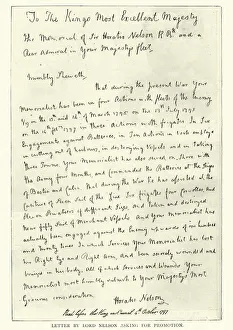 To The Kings Most Excellent Majesty
The Memorial of Sir Horatio Nelson K.B. and a
Rear Admiral in Your Majestys fleet.
Humbly Sheweth,
That during the present War Your
Memorialist has been in four Actions with the fleets of the Enemy
Viz on the 13 and 14th of March 1795 on the 13th July 1795
on the 14th feby 1797 in three Actions with frigates In Six
Engagements against Batteries, in Ten Actions in boats employed
in cutting out of harbours, in destroying Vessels and in Taking
Three Towns, Your Memorialist has also served on Shore with
the Army four Months, and commanded the Batteries at the Sieges
of Bastia and Calvi. That during the War he has assisted at the
Capture of Seven Sail of the Line Six frigates four Corvettes, and
Eleven Privateers of different Sizes, and taken and destroyed
near fifty Sail of Merchant Vessels And Your Memorialist has
actually been engaged against the Enemy upwards of one hundred
and twenty times In which Services Your Memorialist has lost
his Right Eye and Right Arm, and been severely wounded and
bruised in his body. All of which Services and Wounds Your
Memorialist most humbly submits to Your Majestys Most
Gracious consideration.
Horatio Nelson
October 1797
LETTER BY LORD NELSON ASKING FOR PROMOTION.